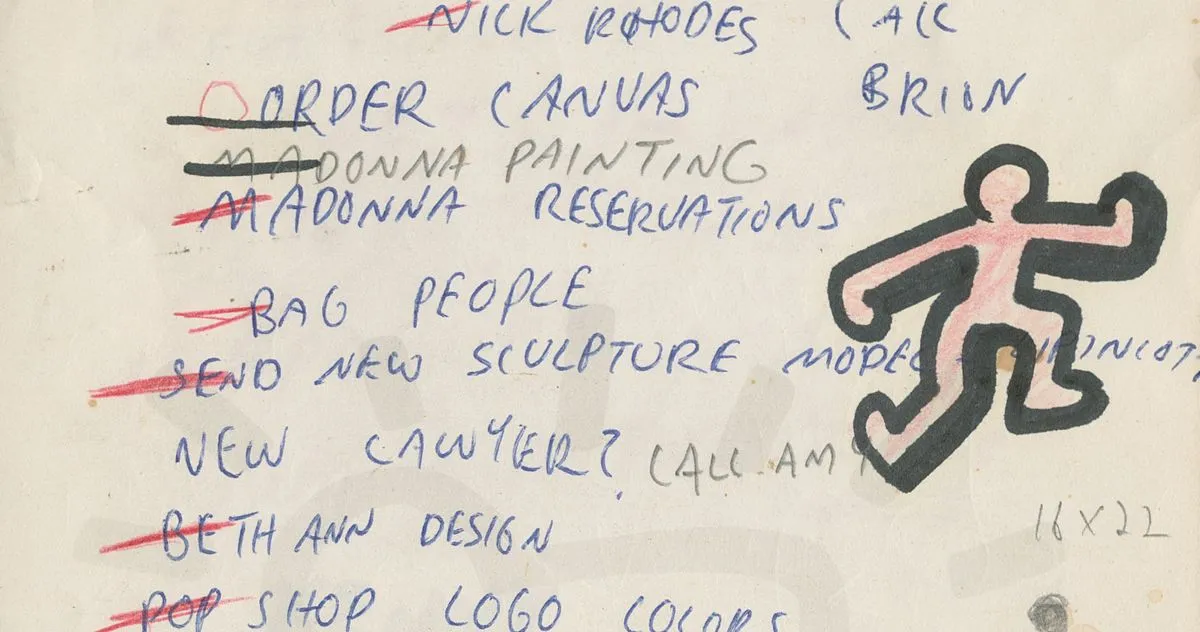 NICK RHODES CALL
ORDER CANVAS BRION
MADONNA PAINTING
MADONNA RESERVATIONS
BAG PEOPLE
SEND NEW SCULPTURE MODEL
NEW LAWYER? CALL AMY
BETH ANN DESIGN
16 X 22
POP SHOP LOGO COLORS